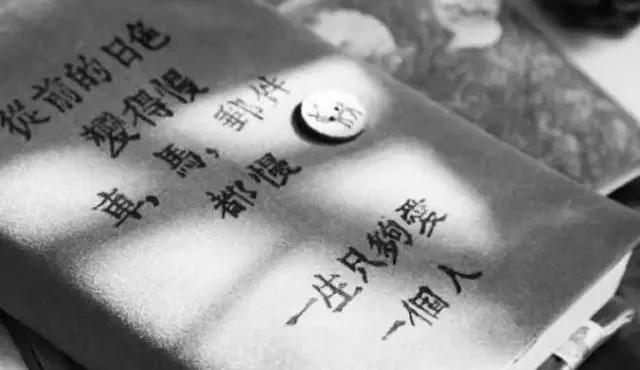 從前的日色
變得慢
車,馬,郵件
都慢
一生只夠愛
一個人